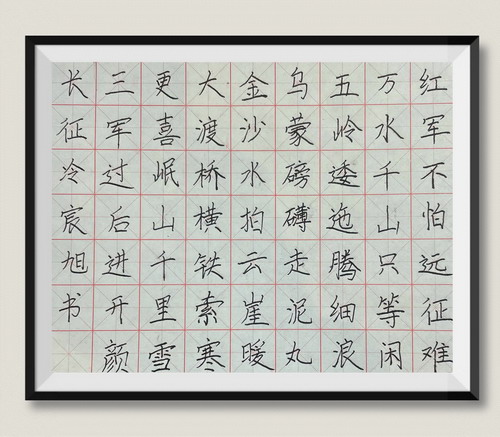 红军不怕远征难
万水千山只等闲
五岭逶迤腾细浪
乌蒙磅礴走泥丸
金沙水拍云崖暖
大渡桥横铁索寒
更喜岷山千里雪
三军过后进开颜
长征冷宸旭书